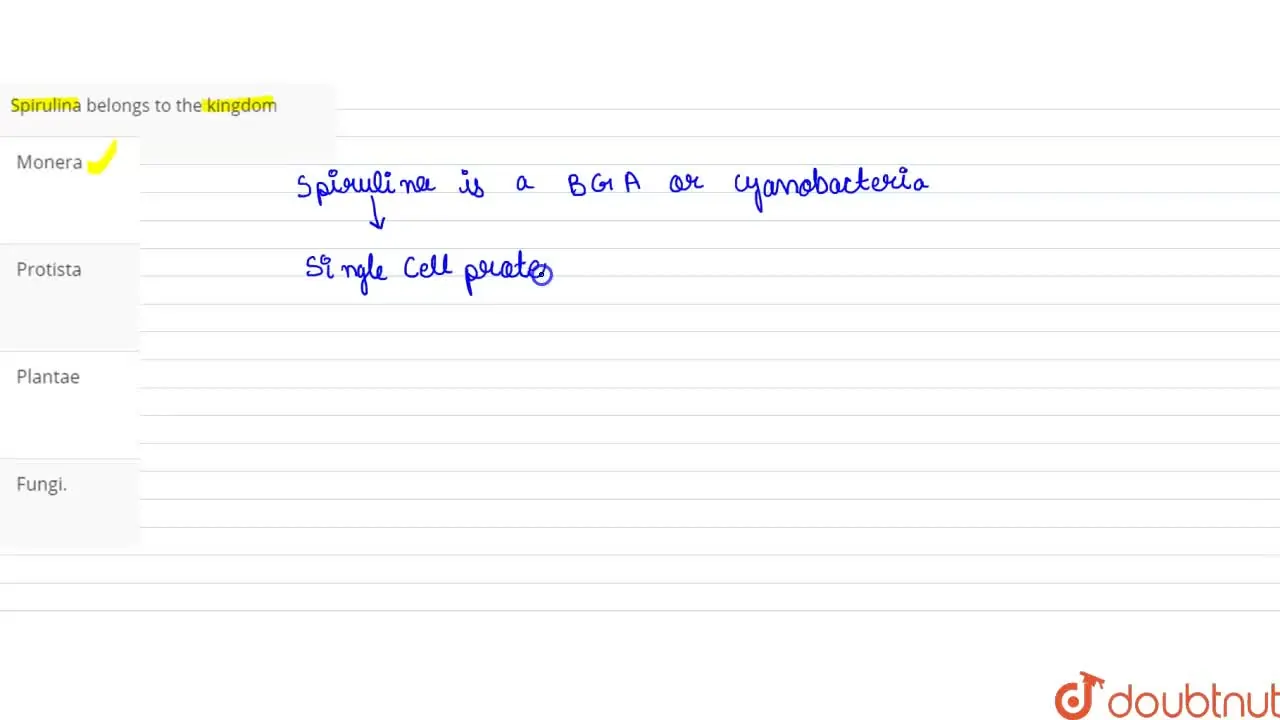 Spirulina belongs to the kingdom
Monera
Spirulina is a BGA or cyanobacteria
Single cell prote
Protista
Plantae
Fungi.
doubtnut